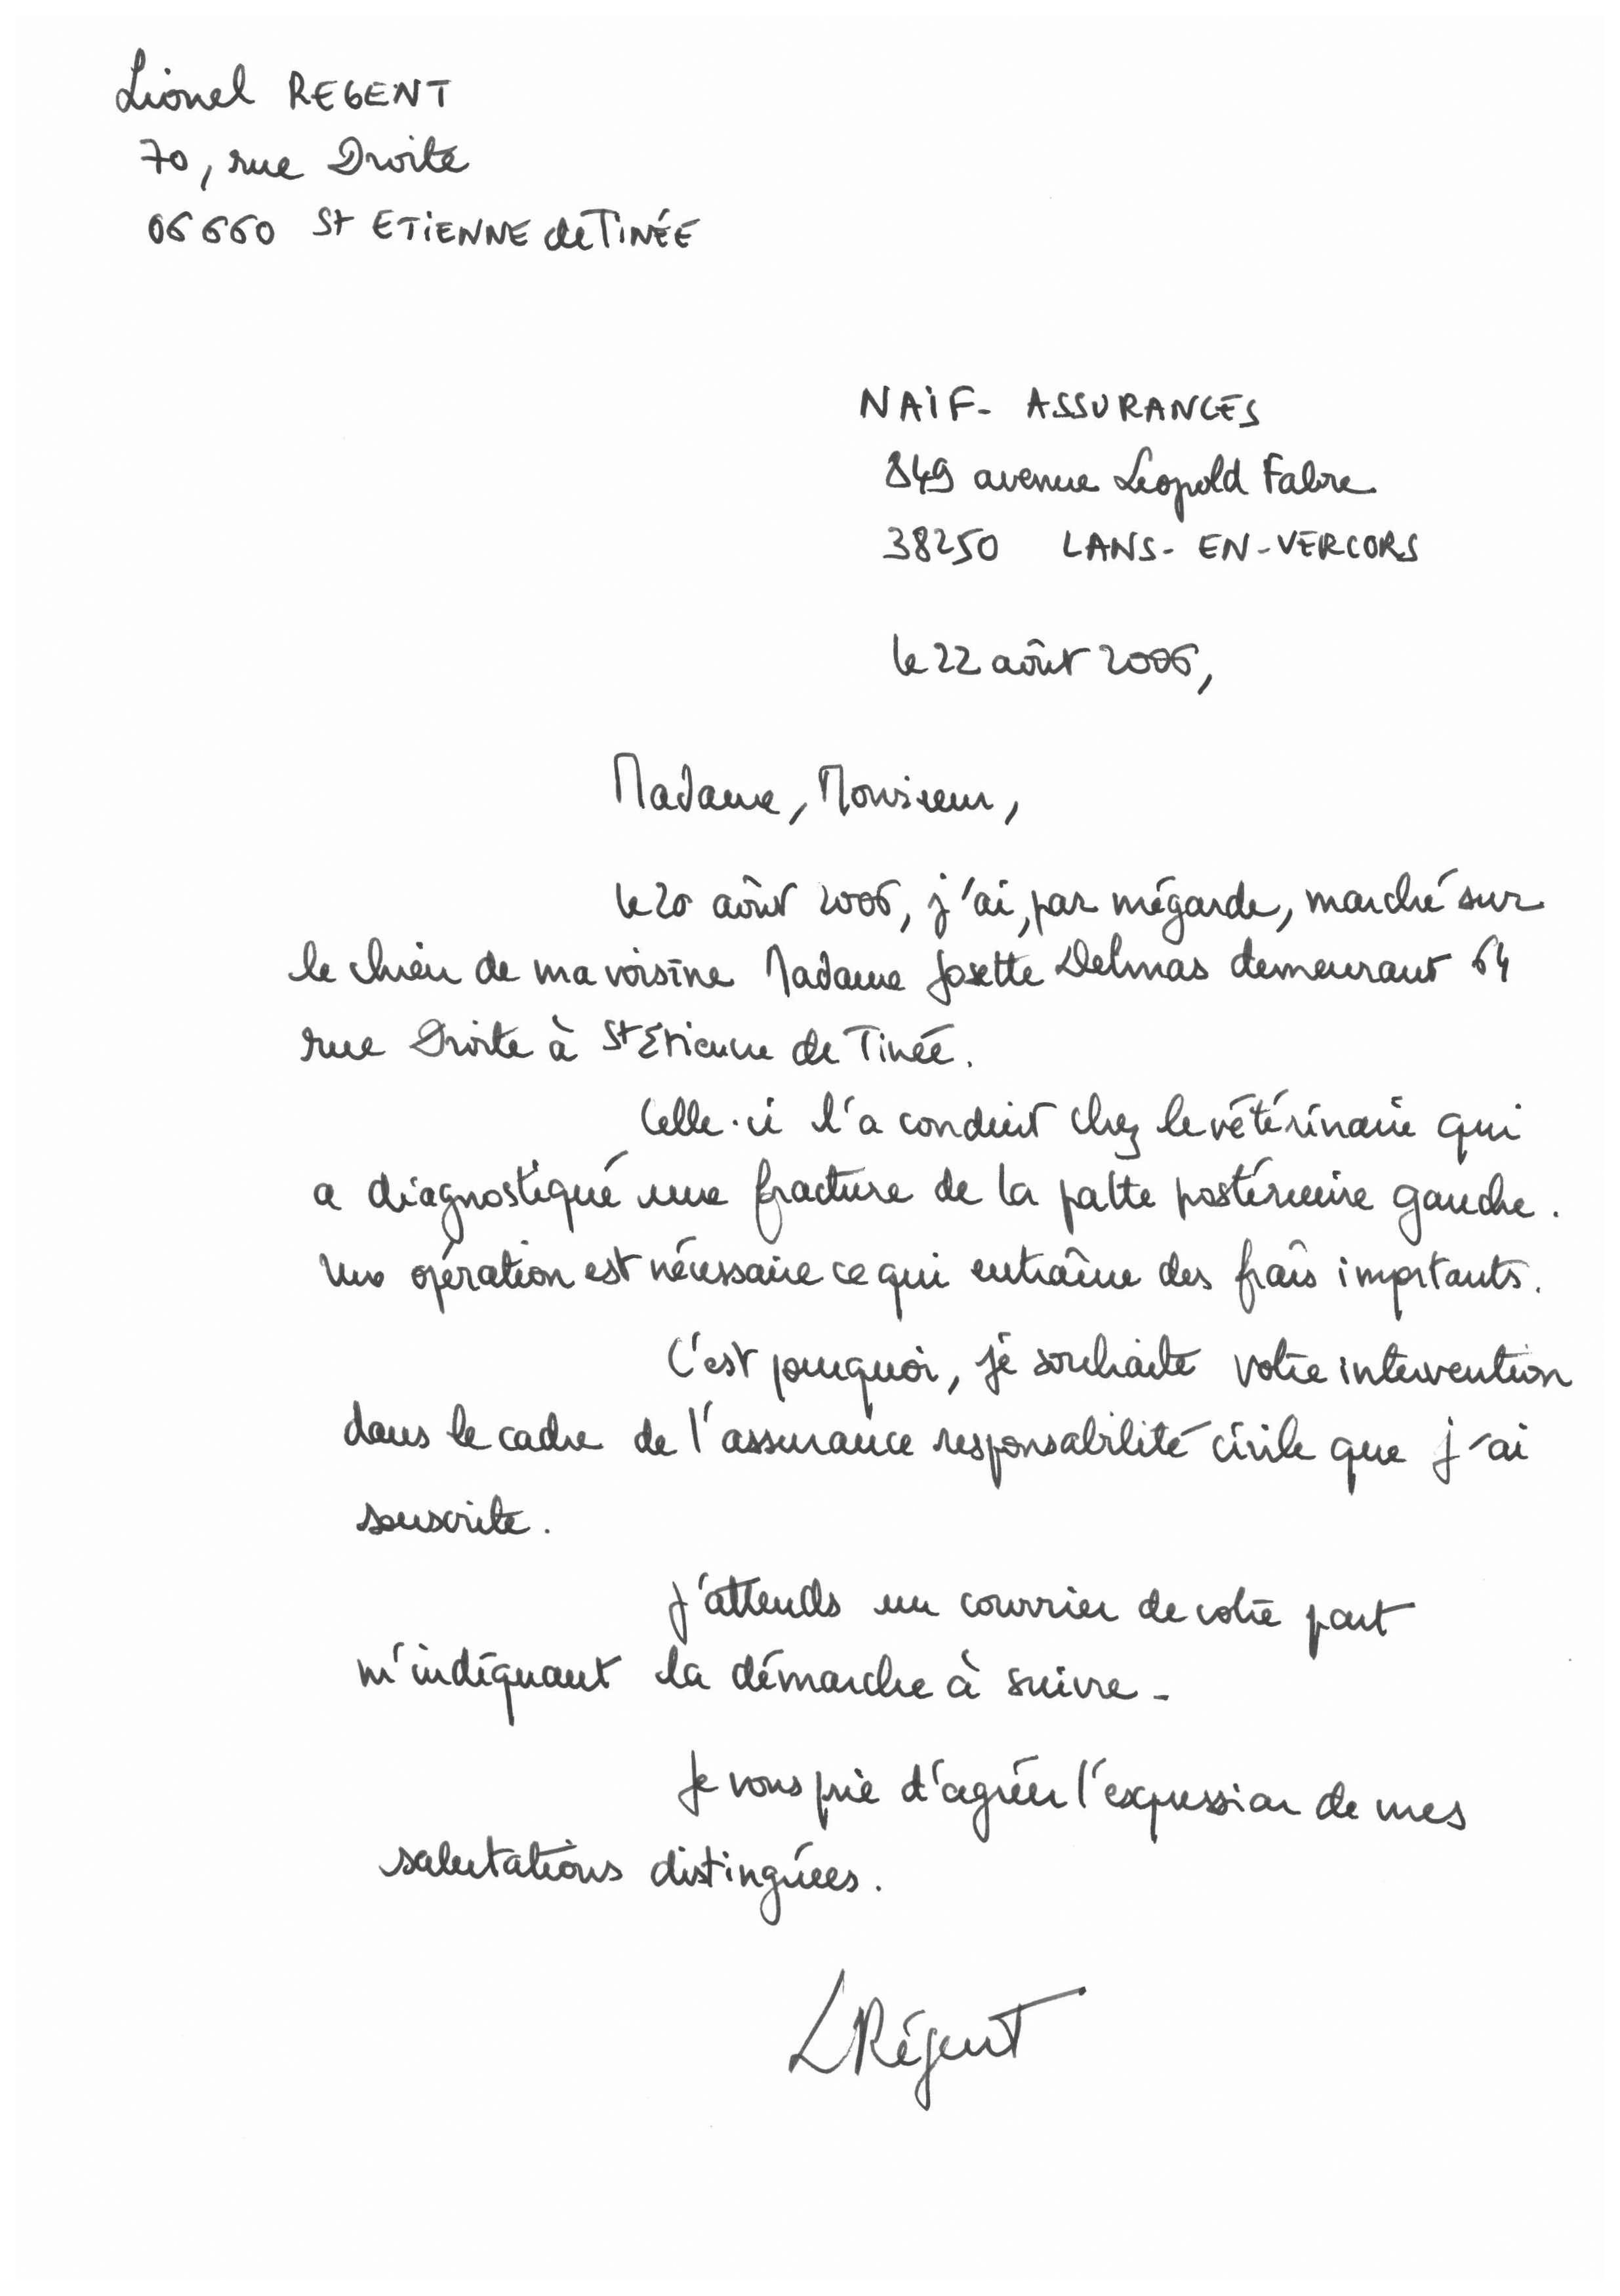 Lionel REGENT
70, rue Droite
06660 St ETIENNE de TINÉE
NAÏF- ASSURANCES
849 avenue Léopold Fabre
38250 LANS-EN-VERCORS
le 22 août 2006,
Madame, Monsieur,
le 20 août 2006, j'ai, par mégarde, marché sur
le chien de ma voisine Madame Josette Delmas demeurant 64
rue Droite à St Etienne de Tinée.
Celle-ci l'a conduit chez le vétérinaire qui
a diagnostiqué une fracture de la patte postérieure gauche.
Une opération est nécessaire ce qui entraîne des frais importants.
C'est pourquoi, je souhaite votre intervention
dans le cadre de l'assurance responsabilité civile que j'ai
souscrite.
J'attends un courrier de votre part
m'indiquant la démarche à suivre.
Je vous prie d'agréer l'expression de mes
salutations distinguées.
LRégent